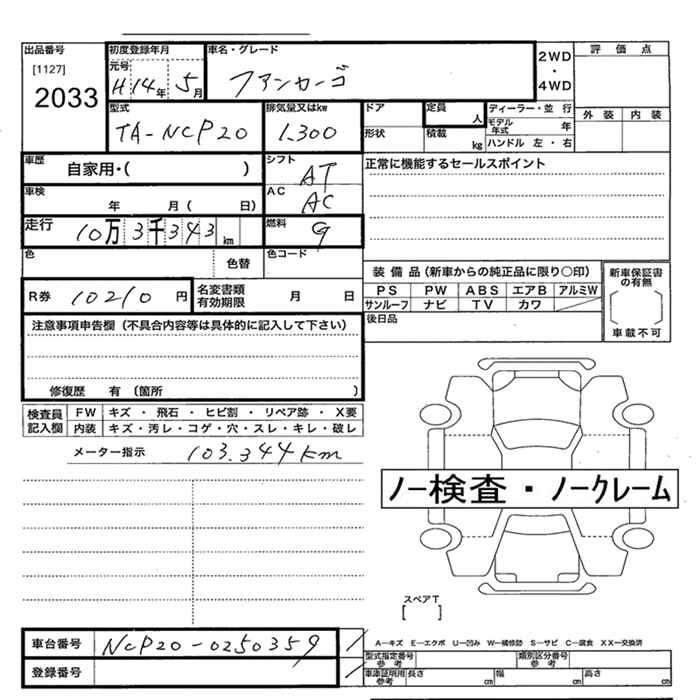 出品番号 初度登録年月 車名・グレード 2WD・4WD 評価点
[1127] 元号 H14年 5月 ファンカーゴ
2033
型式 排気量又はkw ドア 定員 人 ディーラー・並行 外装 内装
TA-NCP20 1,300 形状 積載 kg モデル年式 年
ハンドル 左・右
車歴 自家用・( ) シフト AT 正常に機能するセールスポイント
車検 年 月( 日) AC AC
走行 10万3千343km 燃料 g
色 色替 色コード
装備品(新車からの純正品に限り○印) 新車保証書の有無
R券 10210円 名変書類有効期限 月 日 PS PW ABS エアB アルミW
サンルーフ ナビ TV カワ
車載不可
注意事項申告欄(不具合内容等は具体的に記入して下さい) 後日品
修復歴 有 (箇所 )
検査員記入欄 FW キズ・飛石・ヒビ割・リペア跡・X要
内装 キズ・汚レ・コゲ・穴・スレ・キレ・破レ
メーター指示 103.344km
ノー検査・ノークレーム
スペアT
[ ]
車台番号 NCP20-0250359
A-キズ E-エクボ U-凹み W-補修跡 S-サビ C-腐食 XX-交換済
登録番号 型式指定番号参考 類別区分番号参考
車庫証明用参考 長さ cm 幅 cm 高さ cm